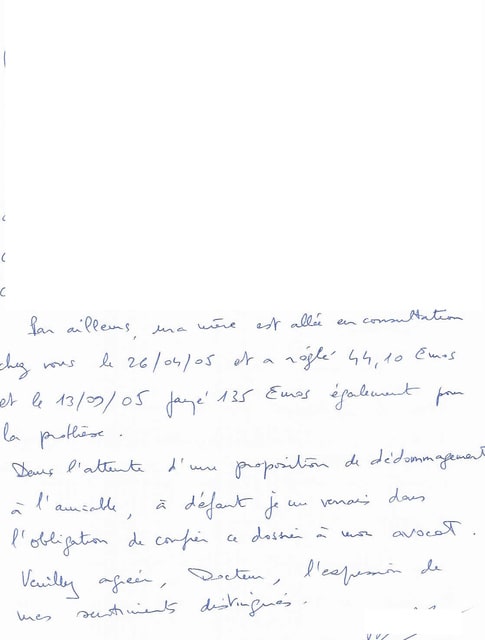 Par ailleurs, ma mère est allée en consultation
chez vous le 26/04/05 et a réglé 44,10 Euros
et le 13/09/05 payé 135 Euros également pour
la prothèse.
Dans l'attente d'une proposition de dédommagement
à l'amiable, à défaut je me verrais dans
l'obligation de confier ce dossier à mon avocat.
Veuillez agréer, Docteur, l'expression de
mes sentiments distingués.